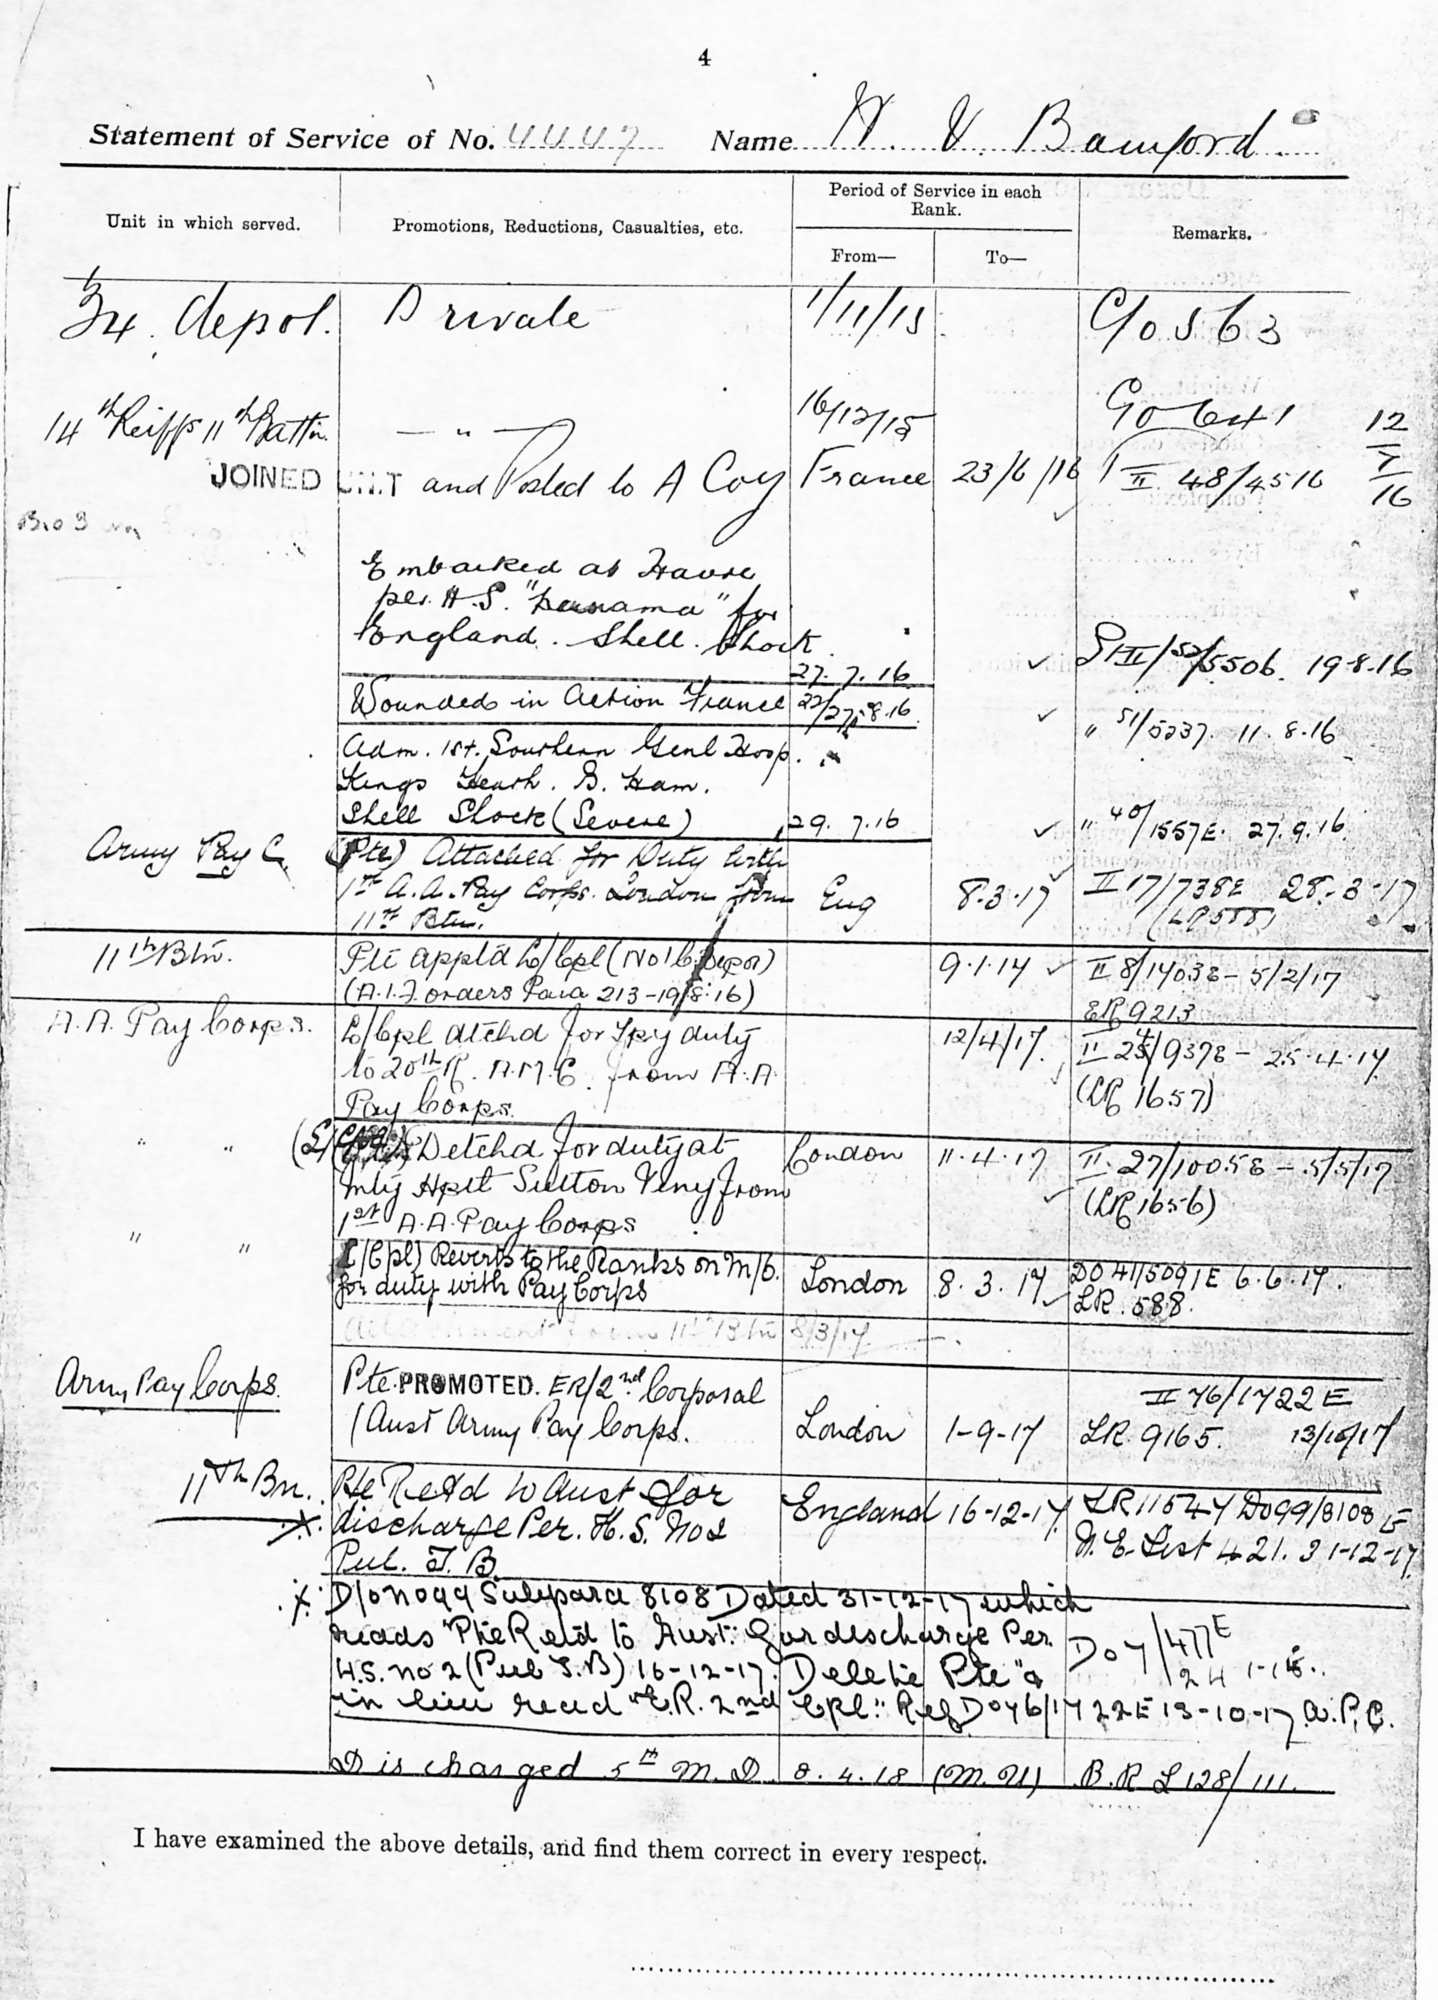 4
Statement of Service of No. 4447 Name H. V. Bamford.
Unit in which served.
Promotions, Reductions, Casualties, etc.
Period of Service in each Rank.
From—
To—
Remarks.
34. depot. Private 1/11/15 G/o 563
14th Reiffs 11th Battn. — " — 16/12/15 Go 641
JOINED UNIT and Posted to A Coy France 23/6/16 II 48/4516 12/7/16
Embarked at Havre
per. H.S. "Panama" for
England. Shell Shock.
27. 7. 16 II/52/5506. 19-8-16
Wounded in Action France 22/27-8.16 " 51/5237. 11. 8.16
Adm. 1st. Southern Genl Hosp.
Kings Heath. B. Ham.
Shell Shock (Severe) 29. 7.16 " 40/1557E. 27.9.16.
Army Pay C. (Pte) Attached for Duty with
1st A.A. Pay Corps. London from Eng 8.3.17 II 17/738E 28-3-17
11th Btn. (LR 588)
11th Btn. Pte appt'd L/Cpl (No 1 C. Depot) 9.1.17 II 8/14038 - 5/2/17
(A.I.F. orders Para 213-19/8.16) ER 9213
A.A. Pay Corps. L/Cpl atchd for Tpy duty 12/4/17. II 25/9378 - 25.4.17
to 20th R. A.M.C. from A.A. (LR 1657)
Pay Corps.
" " (L/Cpl) Detchd for duty at London 11.4.17 II. 27/10058 - 5/5/17
Mty Hpit Sutton Veny from (LR 1656)
1st A.A. Pay Corps
" " L/Cpl) Reverts to the Ranks on M/C. DO 41/5091E 6.6.17.
for duty with Pay Corps London 8. 3. 17 LR. 588.
from 11th Btn 8/3/17
Army Pay Corps. Pte. PROMOTED. ER/2nd Corporal II 76/1722E
(Aust Army Pay Corps. London 1-9-17 LR 9165. 13/10/17
11th Bn. Pte Retd to Aust for England 16-12-17. LR 11547 DO 99/8108 E
discharge Per. H.S. No 2 N.E. List 421. 31-12-17
Pul. T.B.
X D/O No 99 Subpara 8108 Dated 31-12-17 which
reads "Pte Retd to Aust. for discharge Per DO 7/477E
H.S. No 2 (Pul T.B) 16-12-17. Delete Pte" & 24-1-18.
in lieu read "E.R. 2nd Cpl." Ref DO 76/1722E 13-10-17 A.P.C.
Discharged 5th M.D. 8. 4. 18 (M.U) B.R L 128/111.
I have examined the above details, and find them correct in every respect.